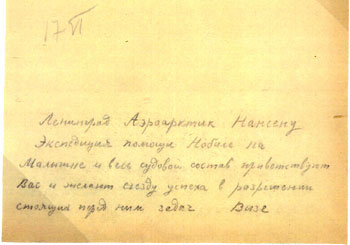 17 VI
Ленинград Аэроарктик Нансену
Экспедиция помощи Нобиле на
Малыгине и весь судовой состав приветствует
Вас и желают съезду успеха в разрешении
стоящих перед ним задач Визе